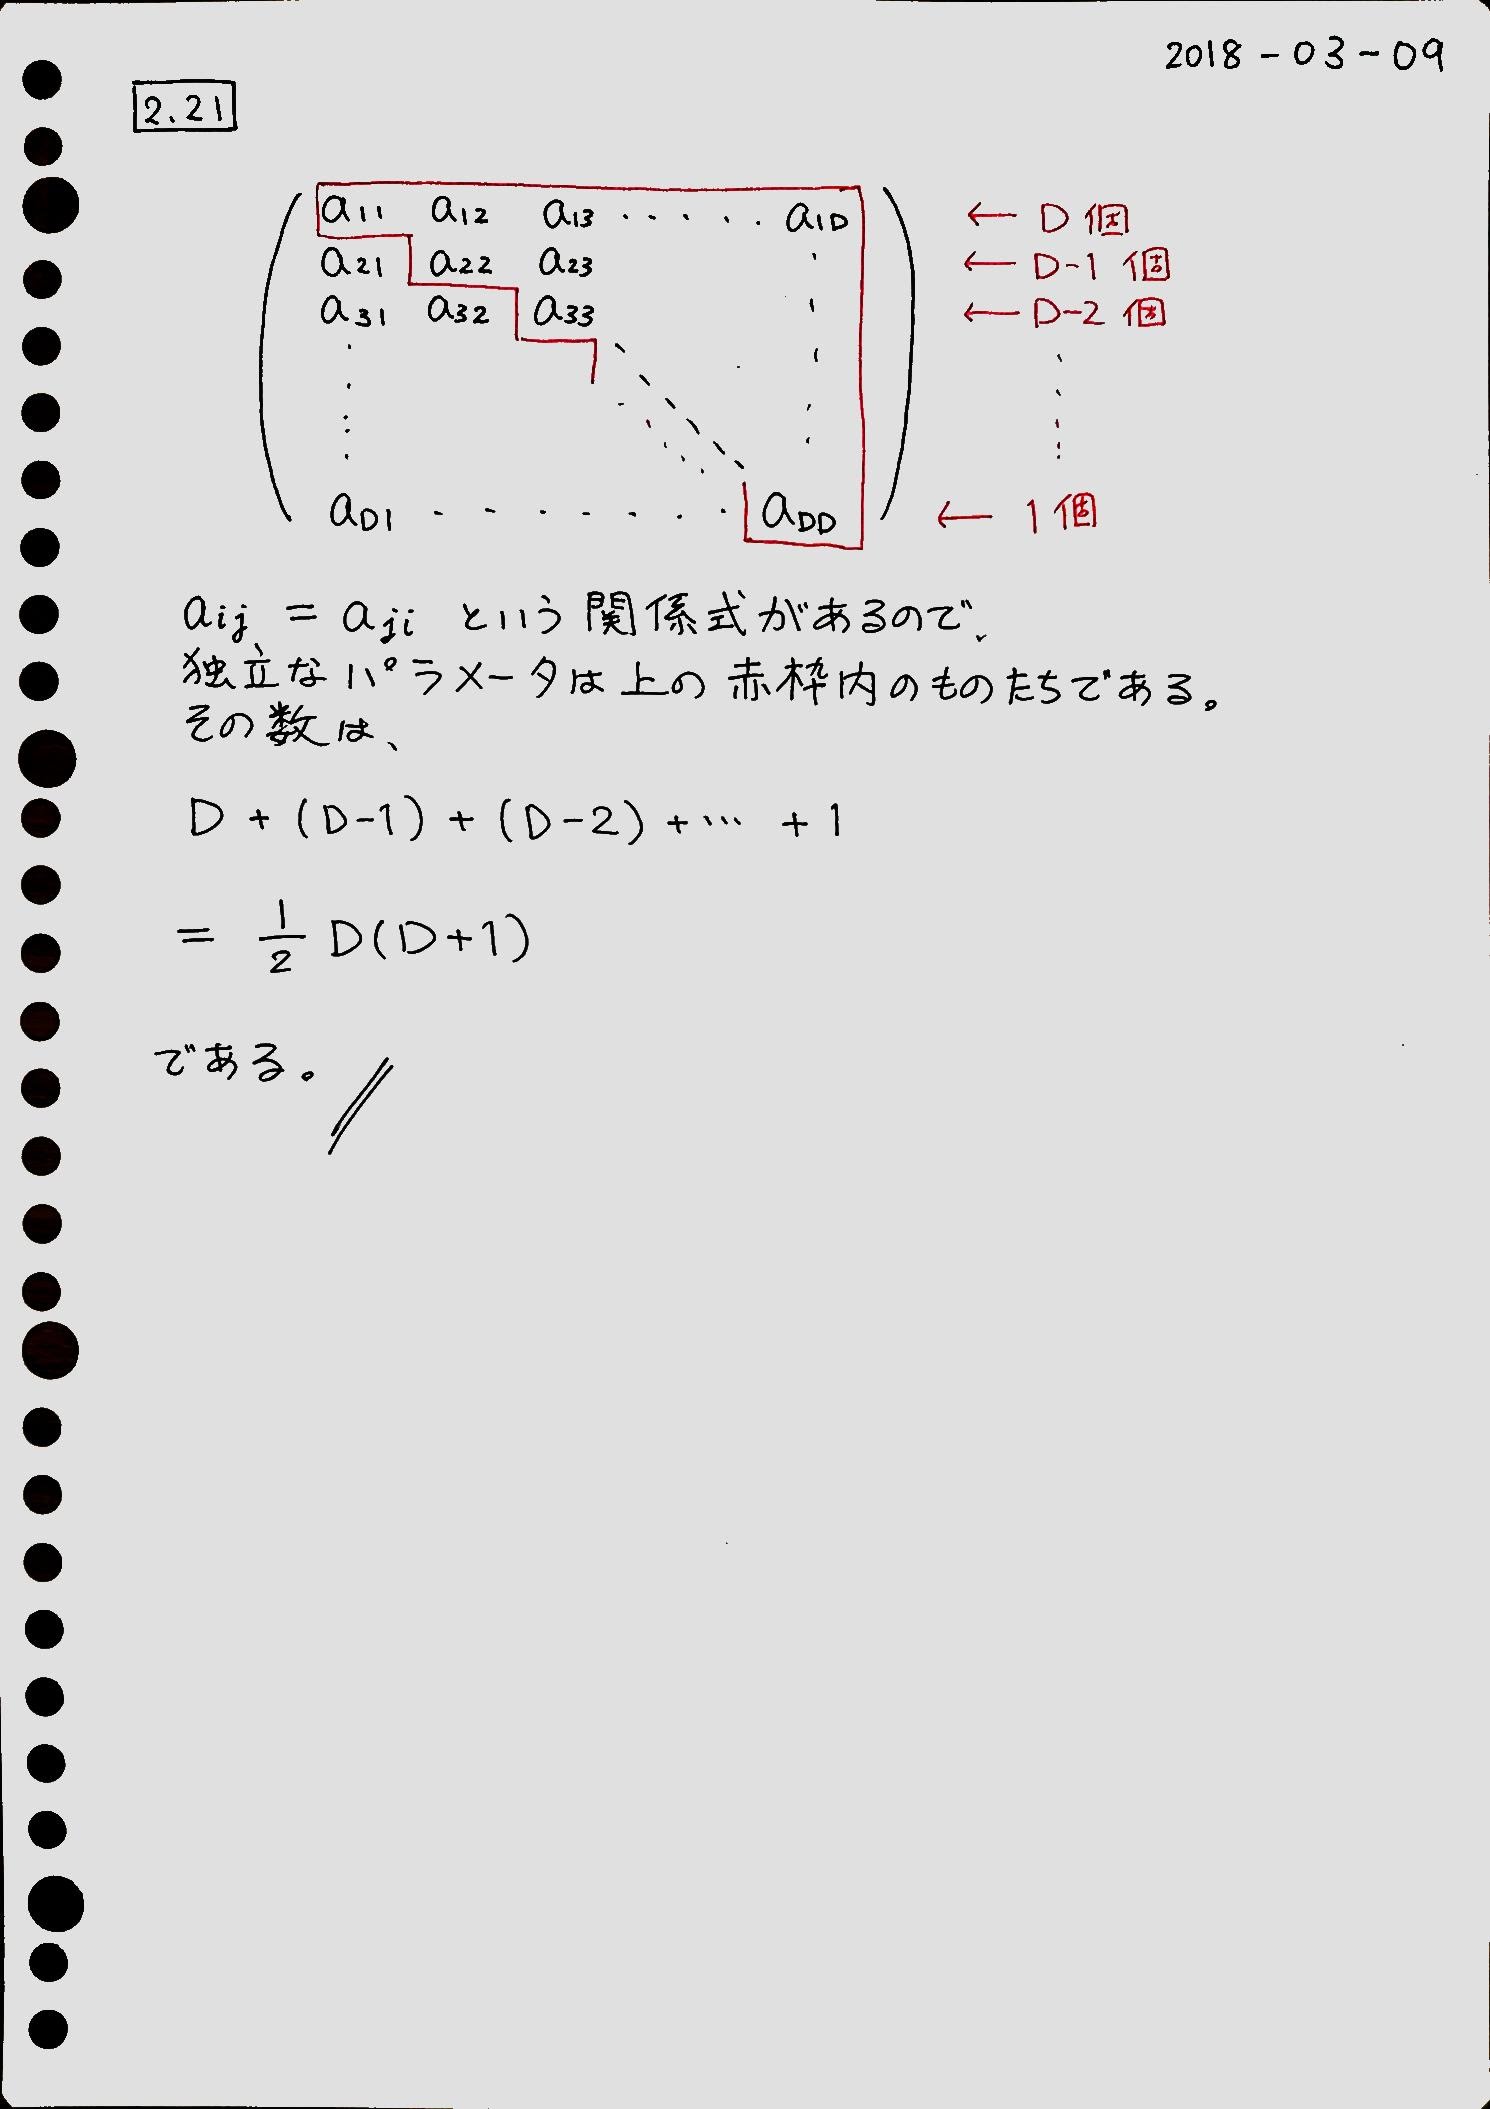 2018-03-09
2.21
a11 a12 a13 ····· a1D ← D個
a21 a22 a23 ← D-1個
a31 a32 a33 ← D-2個
aD1 ······· aDD ← 1個
aij = aji という関係式があるので、
独立なパラメータは上の赤枠内のものたちである。
その数は、
D + (D-1) + (D-2) + ··· + 1
= 1/2 D(D+1)
である。